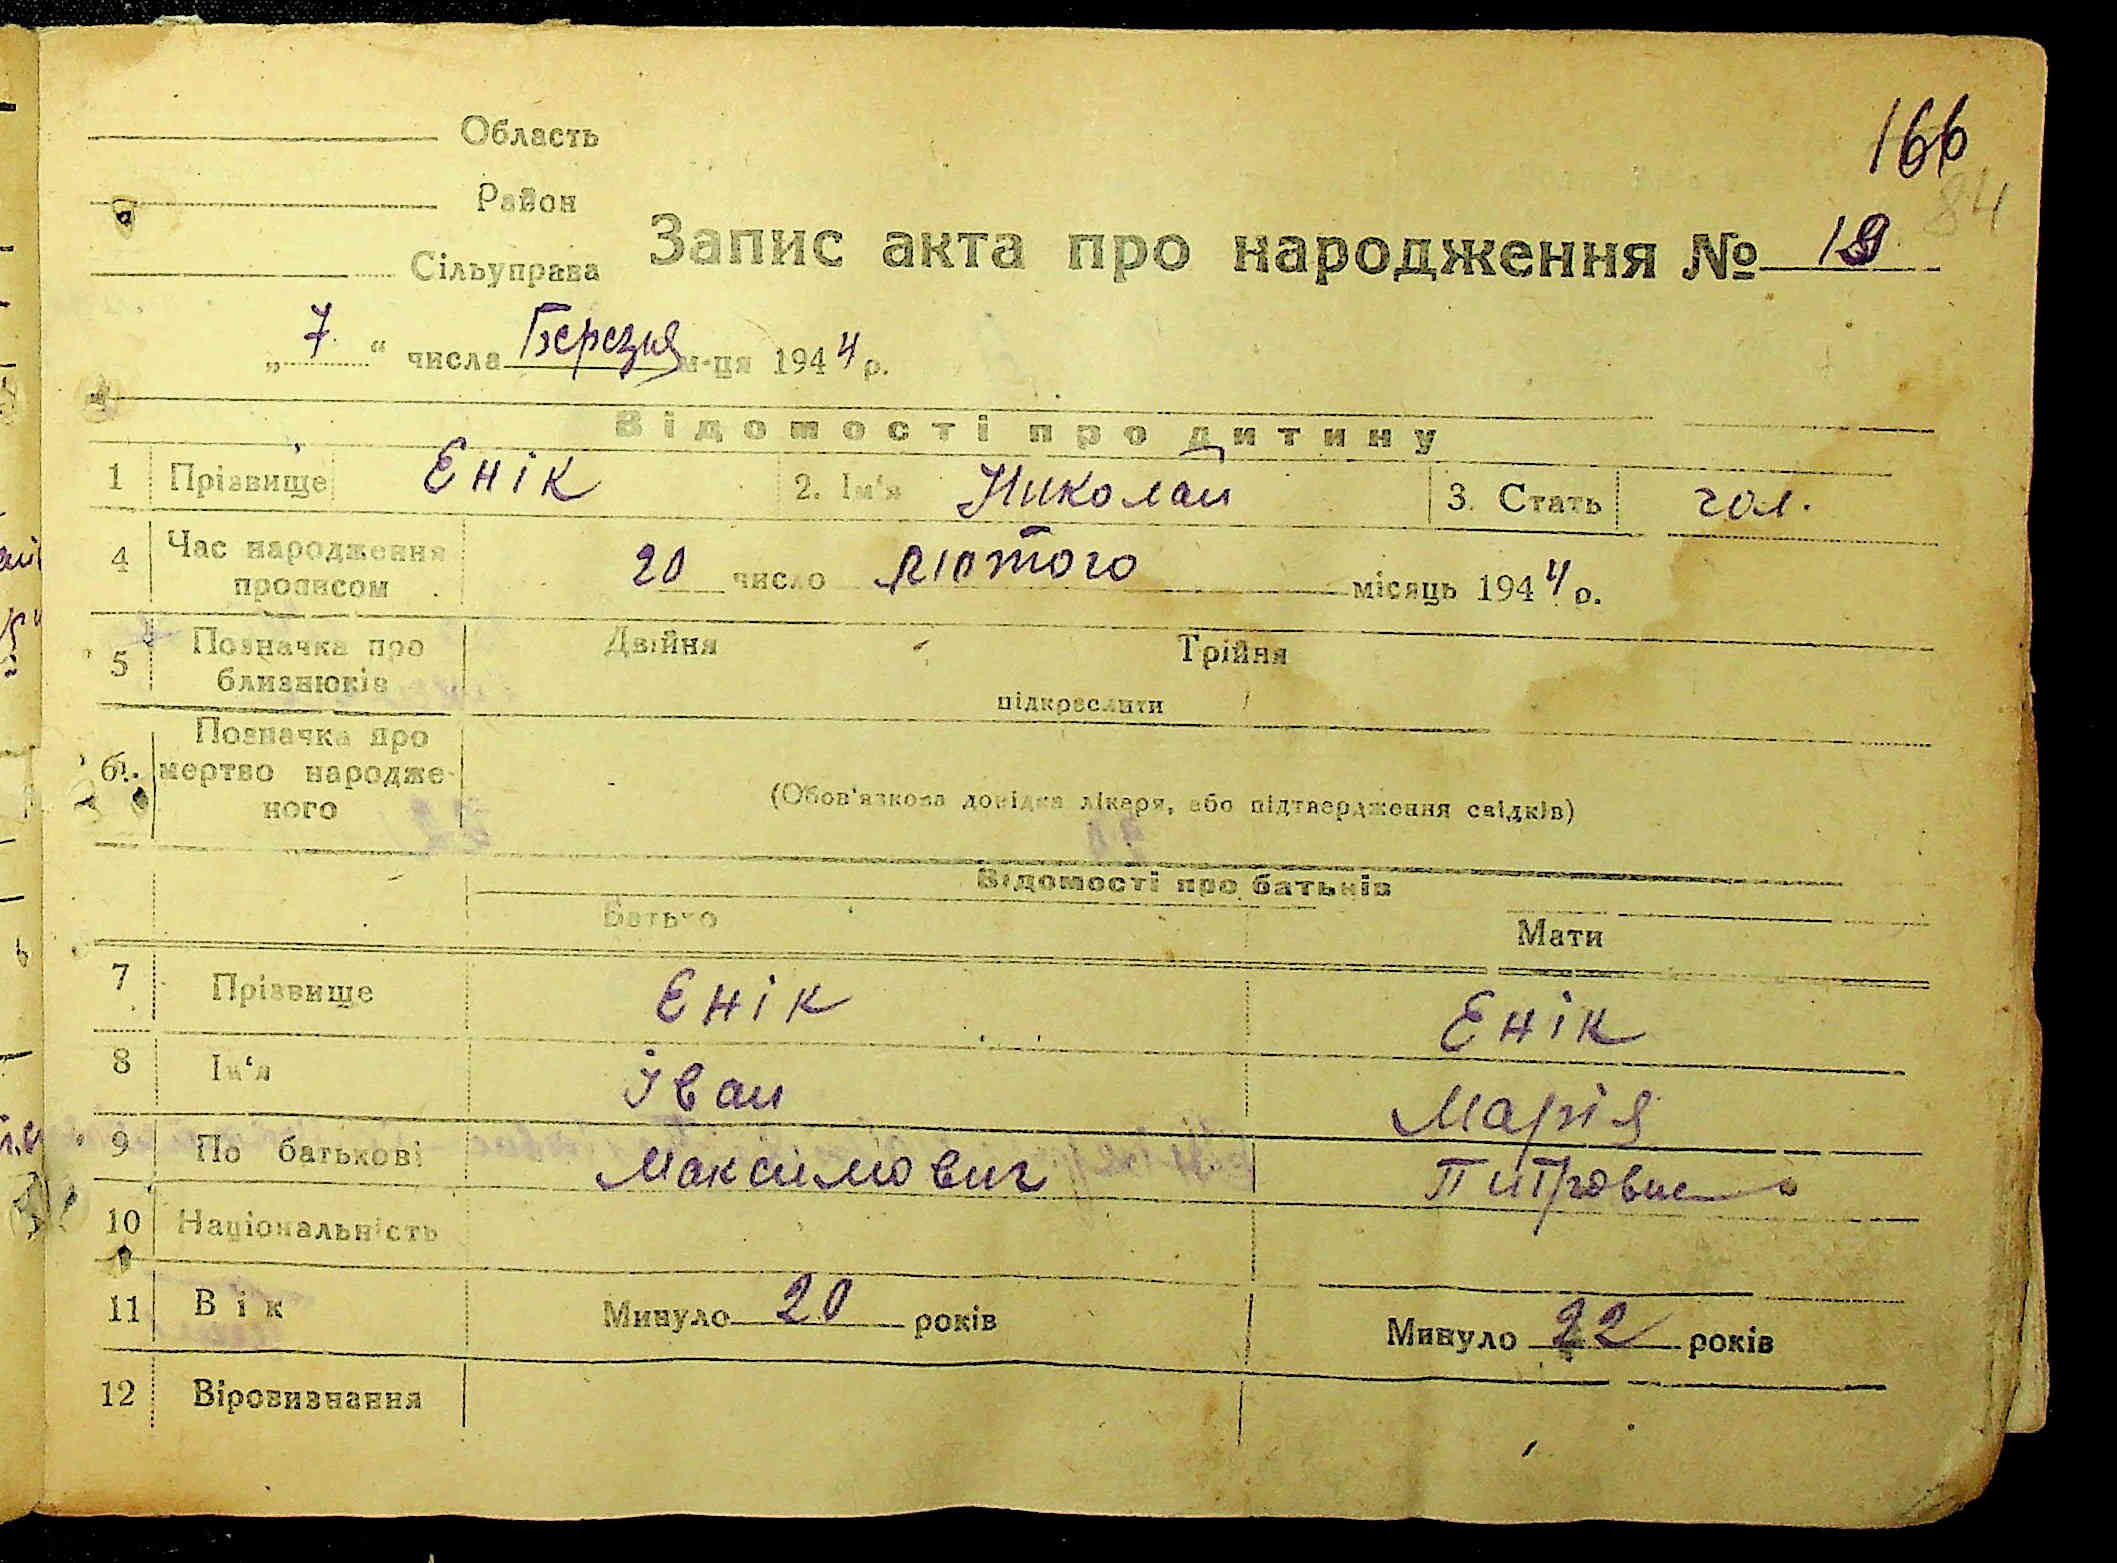 166
84
Область
Район
Сільуправа
Запис акта про народження № 19
„ 7 “ числа Березня м-ця 1944 р.
Відомості про дитину
1 Прізвище Енік 2. Ім'я Николай 3. Стать чол.
4 Час народження прописом 20 число лютого місяць 1944 р.
5 Позначка про близнюків Двійня Трійня
підкреслити
6. Позначка про мертво народженого
(Обов'язкова довідка лікаря, або підтвердження свідків)
Відомості про батьків
Батько Мати
7 Прізвище Енік Енік
8 Ім'я Іван Марія
9 По батькові Максимович
10 Національність
11 Вік Минуло 20 років Минуло 22 років
12 Віровизнання